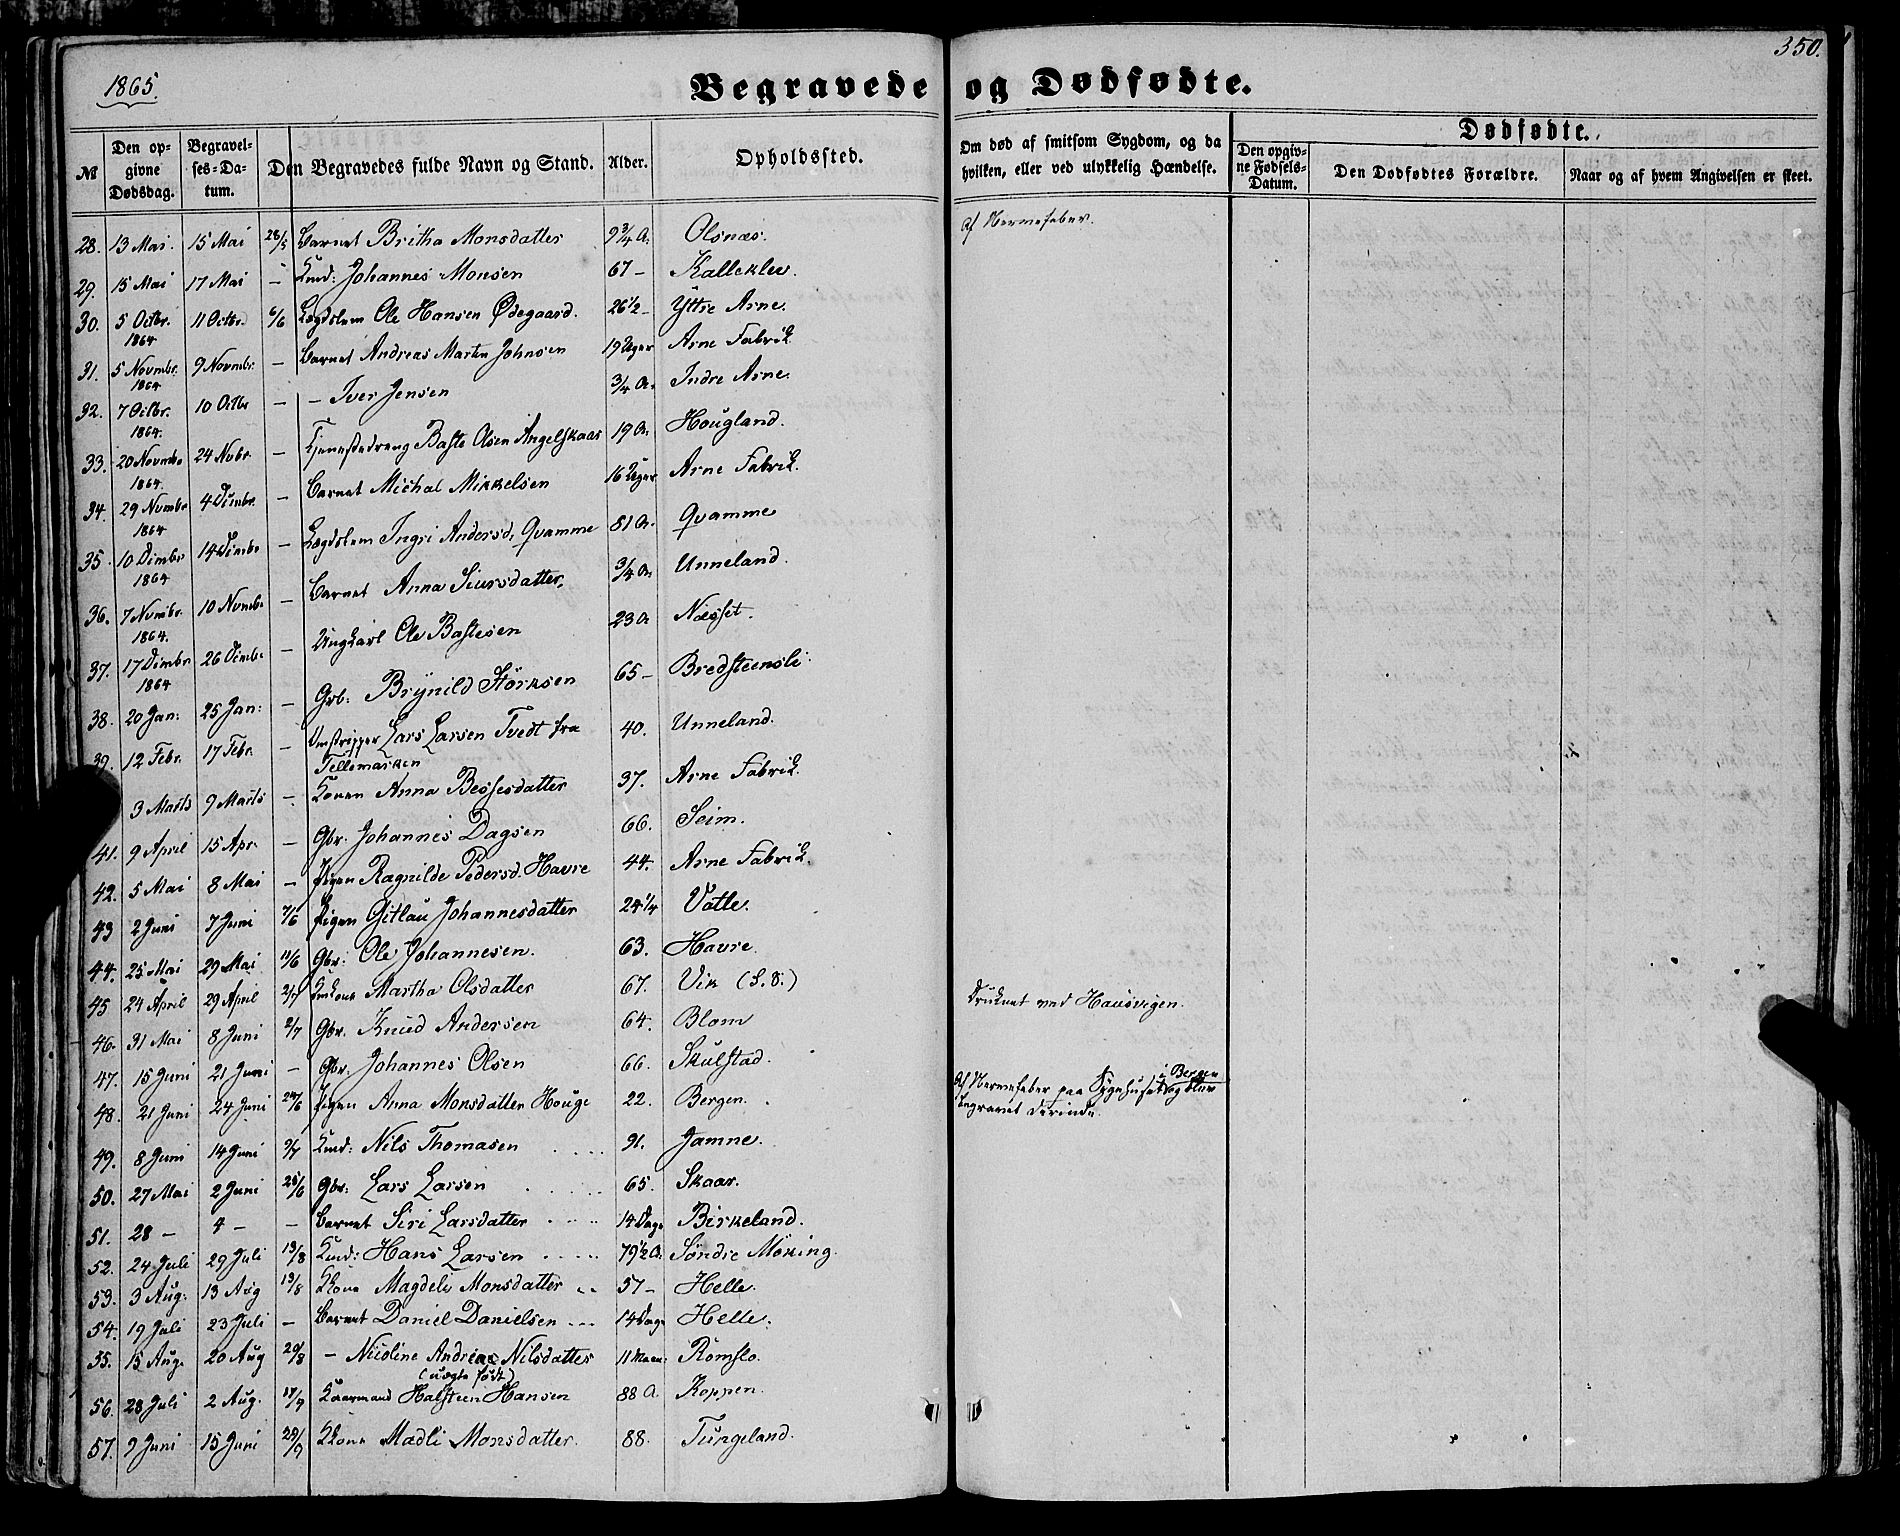 1865.
350.
Begravede og Dødfødte.
№
Den op-
givne
Dødsdag.
Begravel-
ses-Da-
tum.
Den Begravedes fulde Navn og Stand.
Alder.
Opholdssted.
Om død af smitsom Sygdom, og da
hvilken, eller ved ulykkelig Hændelse.
Dødfødte.
Den opgiv-
ne Fødsels-
Datum.
Den Dødfødtes Forældre.
Naar og af hvem Angivelsen er skeet.
28. 13 Mai. 15 Mai 28/5 Barnet Britha Monsdatter 9 3/4 A. Olsnæs. Af Nervefeber.
29. 15 Mai 17 Mai - Kmd: Johannes Monsen 67 - Kalleklev.
30. 5 Octbr. 1864 11 Octbr. 6/6 Lægdslem Ole Hansen Ødegaard. 26 1/2 - Yttre Arne.
31. 5 Novmbr. 1864 9 Novmbr. - Barnet Andreas Martin Johnsen 19 Uger Arne Fabrik
32. 7 Octbr. 1864. 10 Octbr - - Iver Jensen 3/4 A. Indre Arne.
33. 20 Novmbr 1864. 24 Nvbr. - Tjenestedreng Baste Olsen Angelskaar 19 A. Hougland.
34. 29 Nvmbr 1864 4 Dcmbr. - Barnet Michal Mikkelsen 16 Uger Arne Fabrik.
35. 10 Dcmbr 1864 14 Dcmbr - Lægdslem Ingri Andersd. Qvamme 81 A. Qvamme
36. 7 Nvmbr. 1864. 10 Nvmbr - Barnet Anna Siursdatter, 3/4 A. Unneland.
37. 17 Dcmbr 1864 26 Dcmbr - Ungkarl Ole Bastesen 23 A Næsset.
38. 20 Jan: 25 Jan: - Gbr: Brynild Størksen 65 - Bredsteensli.
39. 12 Febr. 17 Febr. - Lars Larsen Tvedt fra Tellemarken 40. Unneland.
3 Marts 9 Marts - Konen Anna Bessesdatter 37. Arne Fabrik.
41. 9 April 15 Apr. - Gbr. Johannes Dagsen 66. Seim.
42. 5 Mai 8 Mai - Pigen Ragnilde Pedersd. Havre 44. Arne Fabrik.
43 2 Juni 7 Juni 7/6 Pigen Gitlau Johannesdatter 24 1/4 Votle.
44. 25 Mai 29 Mai 11/6 Gbr: Ole Johannesen. 63. Havre.
45 24 April 29 April 2/7 Kmkone Martha Olsdatter 67. Vik (S.S.)
46. 31 Mai 8 Juni 2/7 Gbr. Knud Andersen 64. Blom Druknet ved Hausvigen.
47. 15 Juni 21 Juni - Gbr. Johannes Olsen 66. Skulstad.
48. 21 Juni 24 Juni Pigen Anna Monsdatter Houge 22. Bergen. Af Nervefeber paa Sygehuset i Bergen og blev
begravet derinde.
49. 8 Juni 14 Juni 9/7 Kmd: Nils Thomasen 91. Jamne.
50. 27 Mai 2 Juni 25/6 Gbr: Lars Larsen 65. Skaar.
51. 28 - 4 - - Barnet Siri Larsdatter 14 Dage Birkeland.
52. 24 Juli 29 Juli 13/8 Kmd: Hans Larsen 79 1/2 A. Søndre Møking.
53. 3 Aug: 13 Aug 13/8 Kone Magdeli Monsdatter 57 - Helle.
54. 19 Juli 23 Juli - Barnet Daniel Danielsen 14 Dage Helle.
55. 15 Aug. 20 Aug 20/8 - Nicoline Andrea Nilsdatter 11 Maan: Romslo.
(uægte født)
56. 28 Juli 2 Aug. 17/9 Kaarmand Halsteen Hansen 88 A. Koppen.
57. 9 Juni 15 Juni 29/9 Kone Madli Monsdatter. 88. Tungeland.